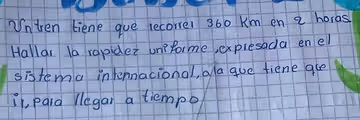 Un tren tiene que recorrer 360 Km en 2 horas
Hallar la rapidez uniforme, expresada en el
sistema internacional, a la que tiene que
ir, para llegar a tiempo